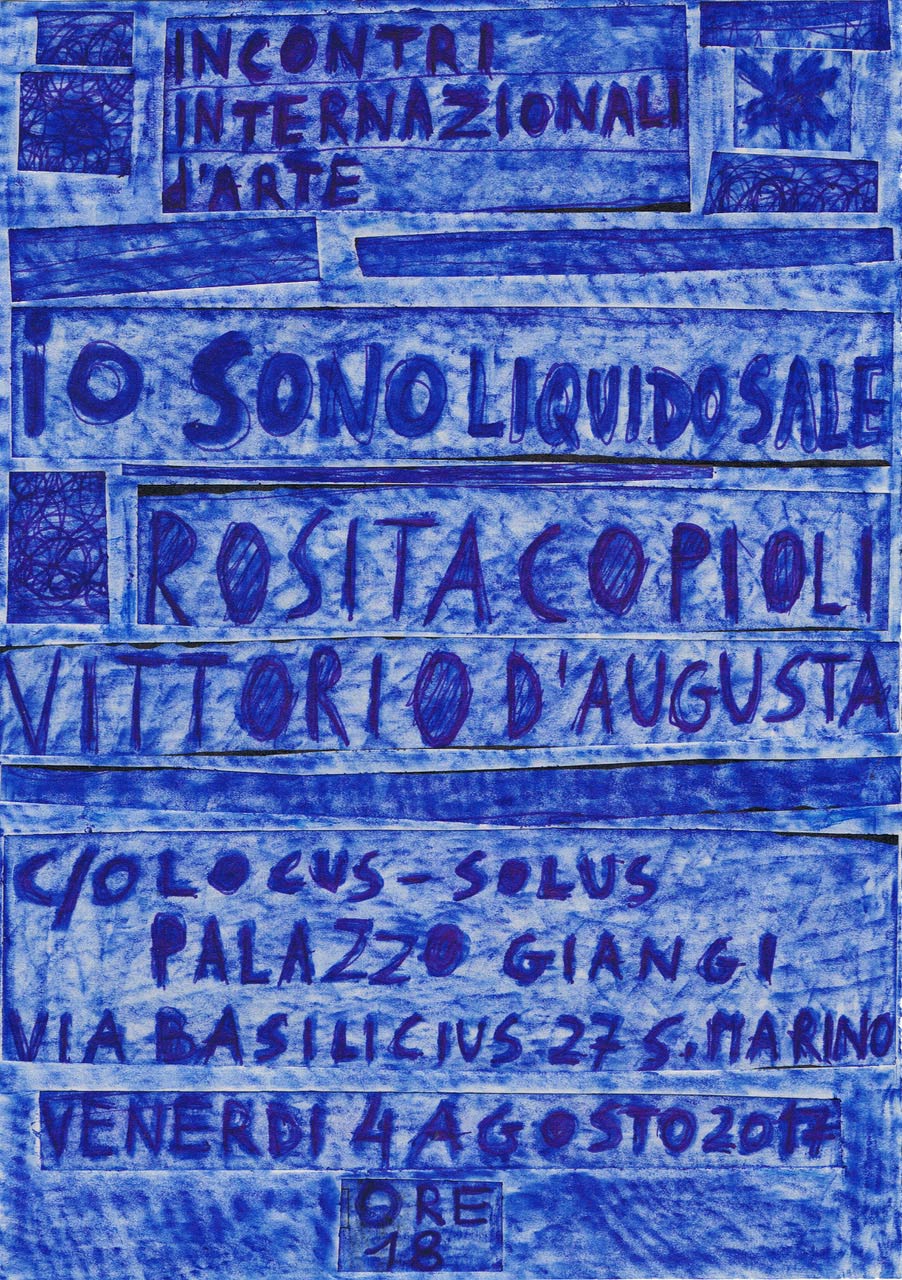 INCONTRI
INTERNAZIONALI
d'ARTE
iO SONO LIQUIDO SALE
ROSITA COPIOLI
VITTORIO D'AUGUSTA
C/O LOCUS-SOLUS
PALAZZO GIANGI
VIA BASILICIUS 27 S. MARINO
VENERDI 4 AGOSTO 2017
ORE
18